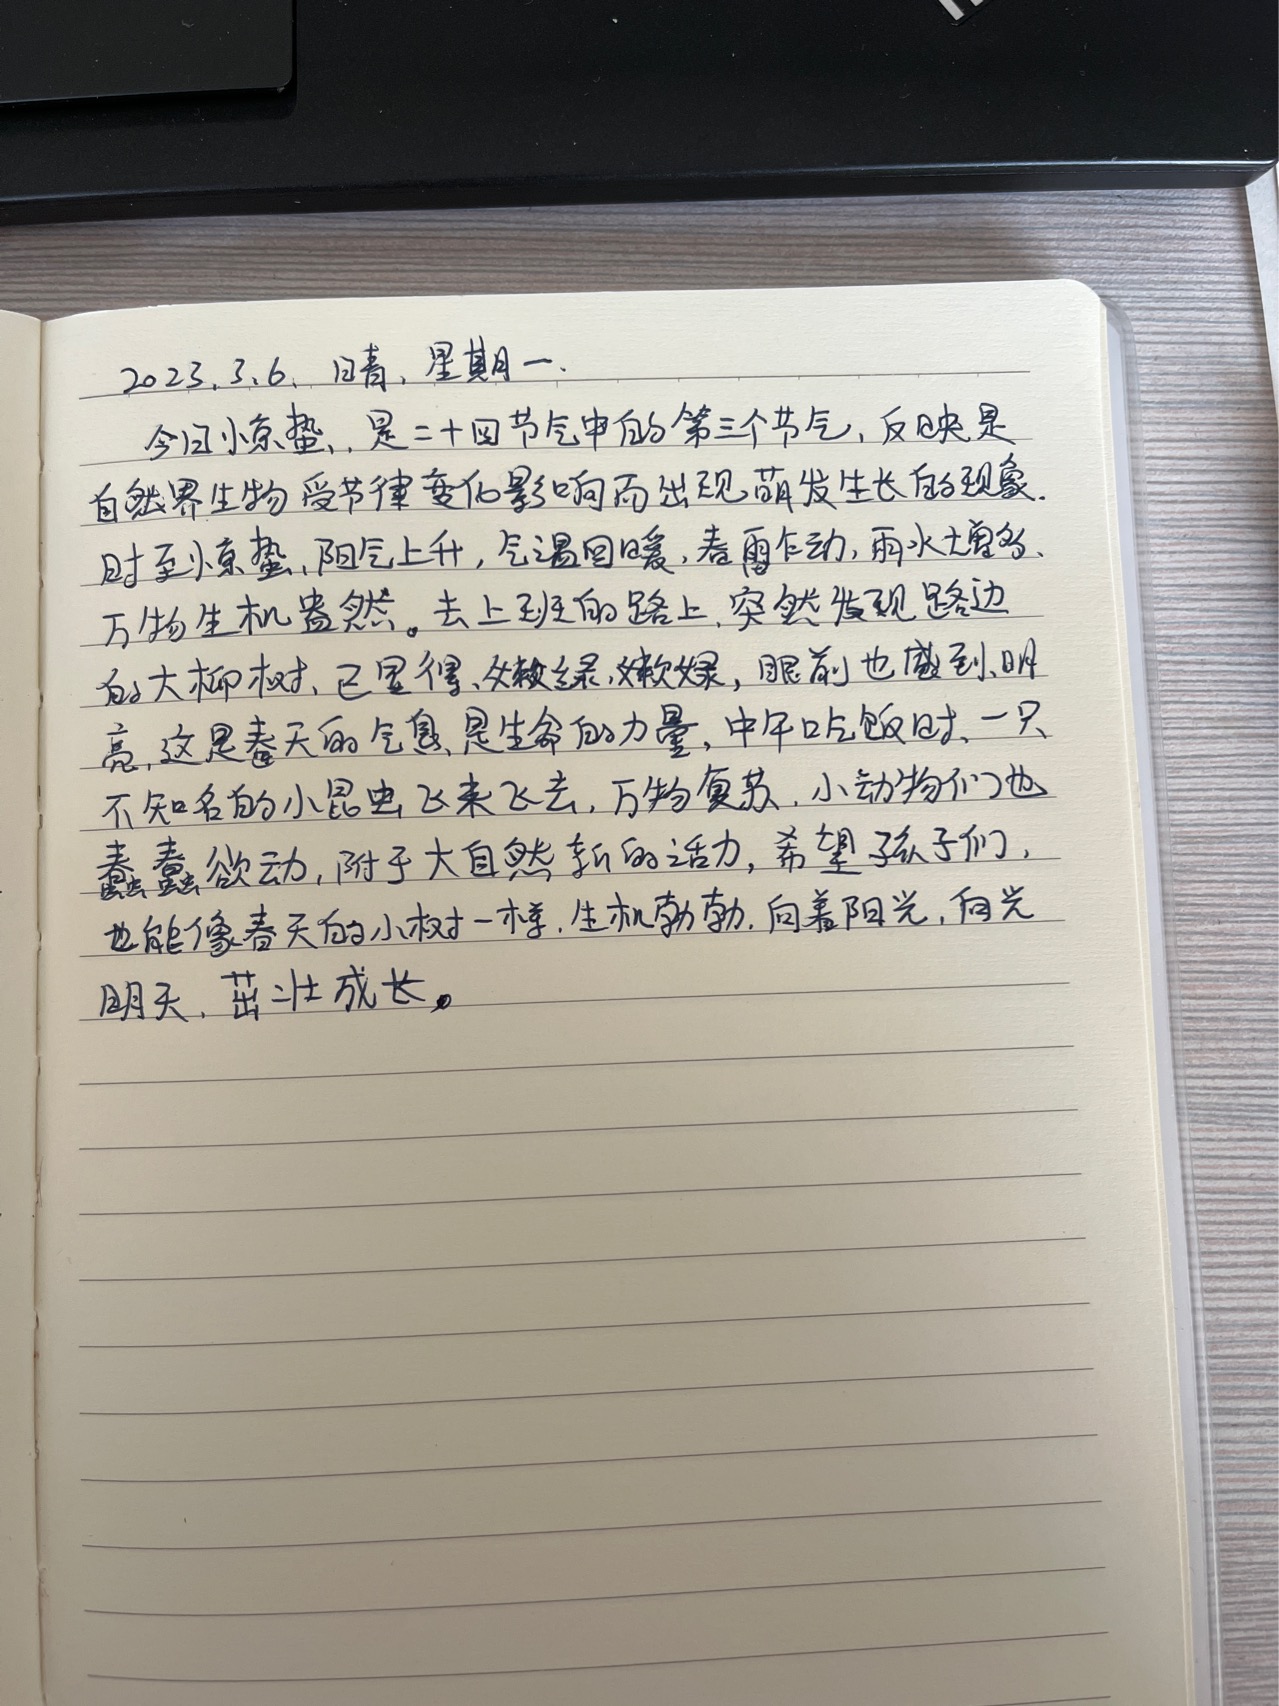 2023.3.6. 日晴, 星期一.
今日惊蛰, 是二十四节气中的第三个节气, 反映是
自然界生物受节律变化影响而出现萌发生长的现象.
时至惊蛰, 阳气上升, 气温回暖, 春雷乍动, 雨水增多,
万物生机盎然。去上班的路上, 突然发现路边
的大柳树, 已显得、嫩绿嫩绿, 眼前也感到明
亮, 这是春天的气息, 是生命的力量, 中午吃饭时、一只
不知名的小昆虫飞来飞去, 万物复苏, 小动物们也
蠢蠢欲动, 附于大自然新的活力, 希望孩子们,
也能像春天的小树一样, 生机勃勃, 向着阳光, 向光
明天, 茁壮成长。